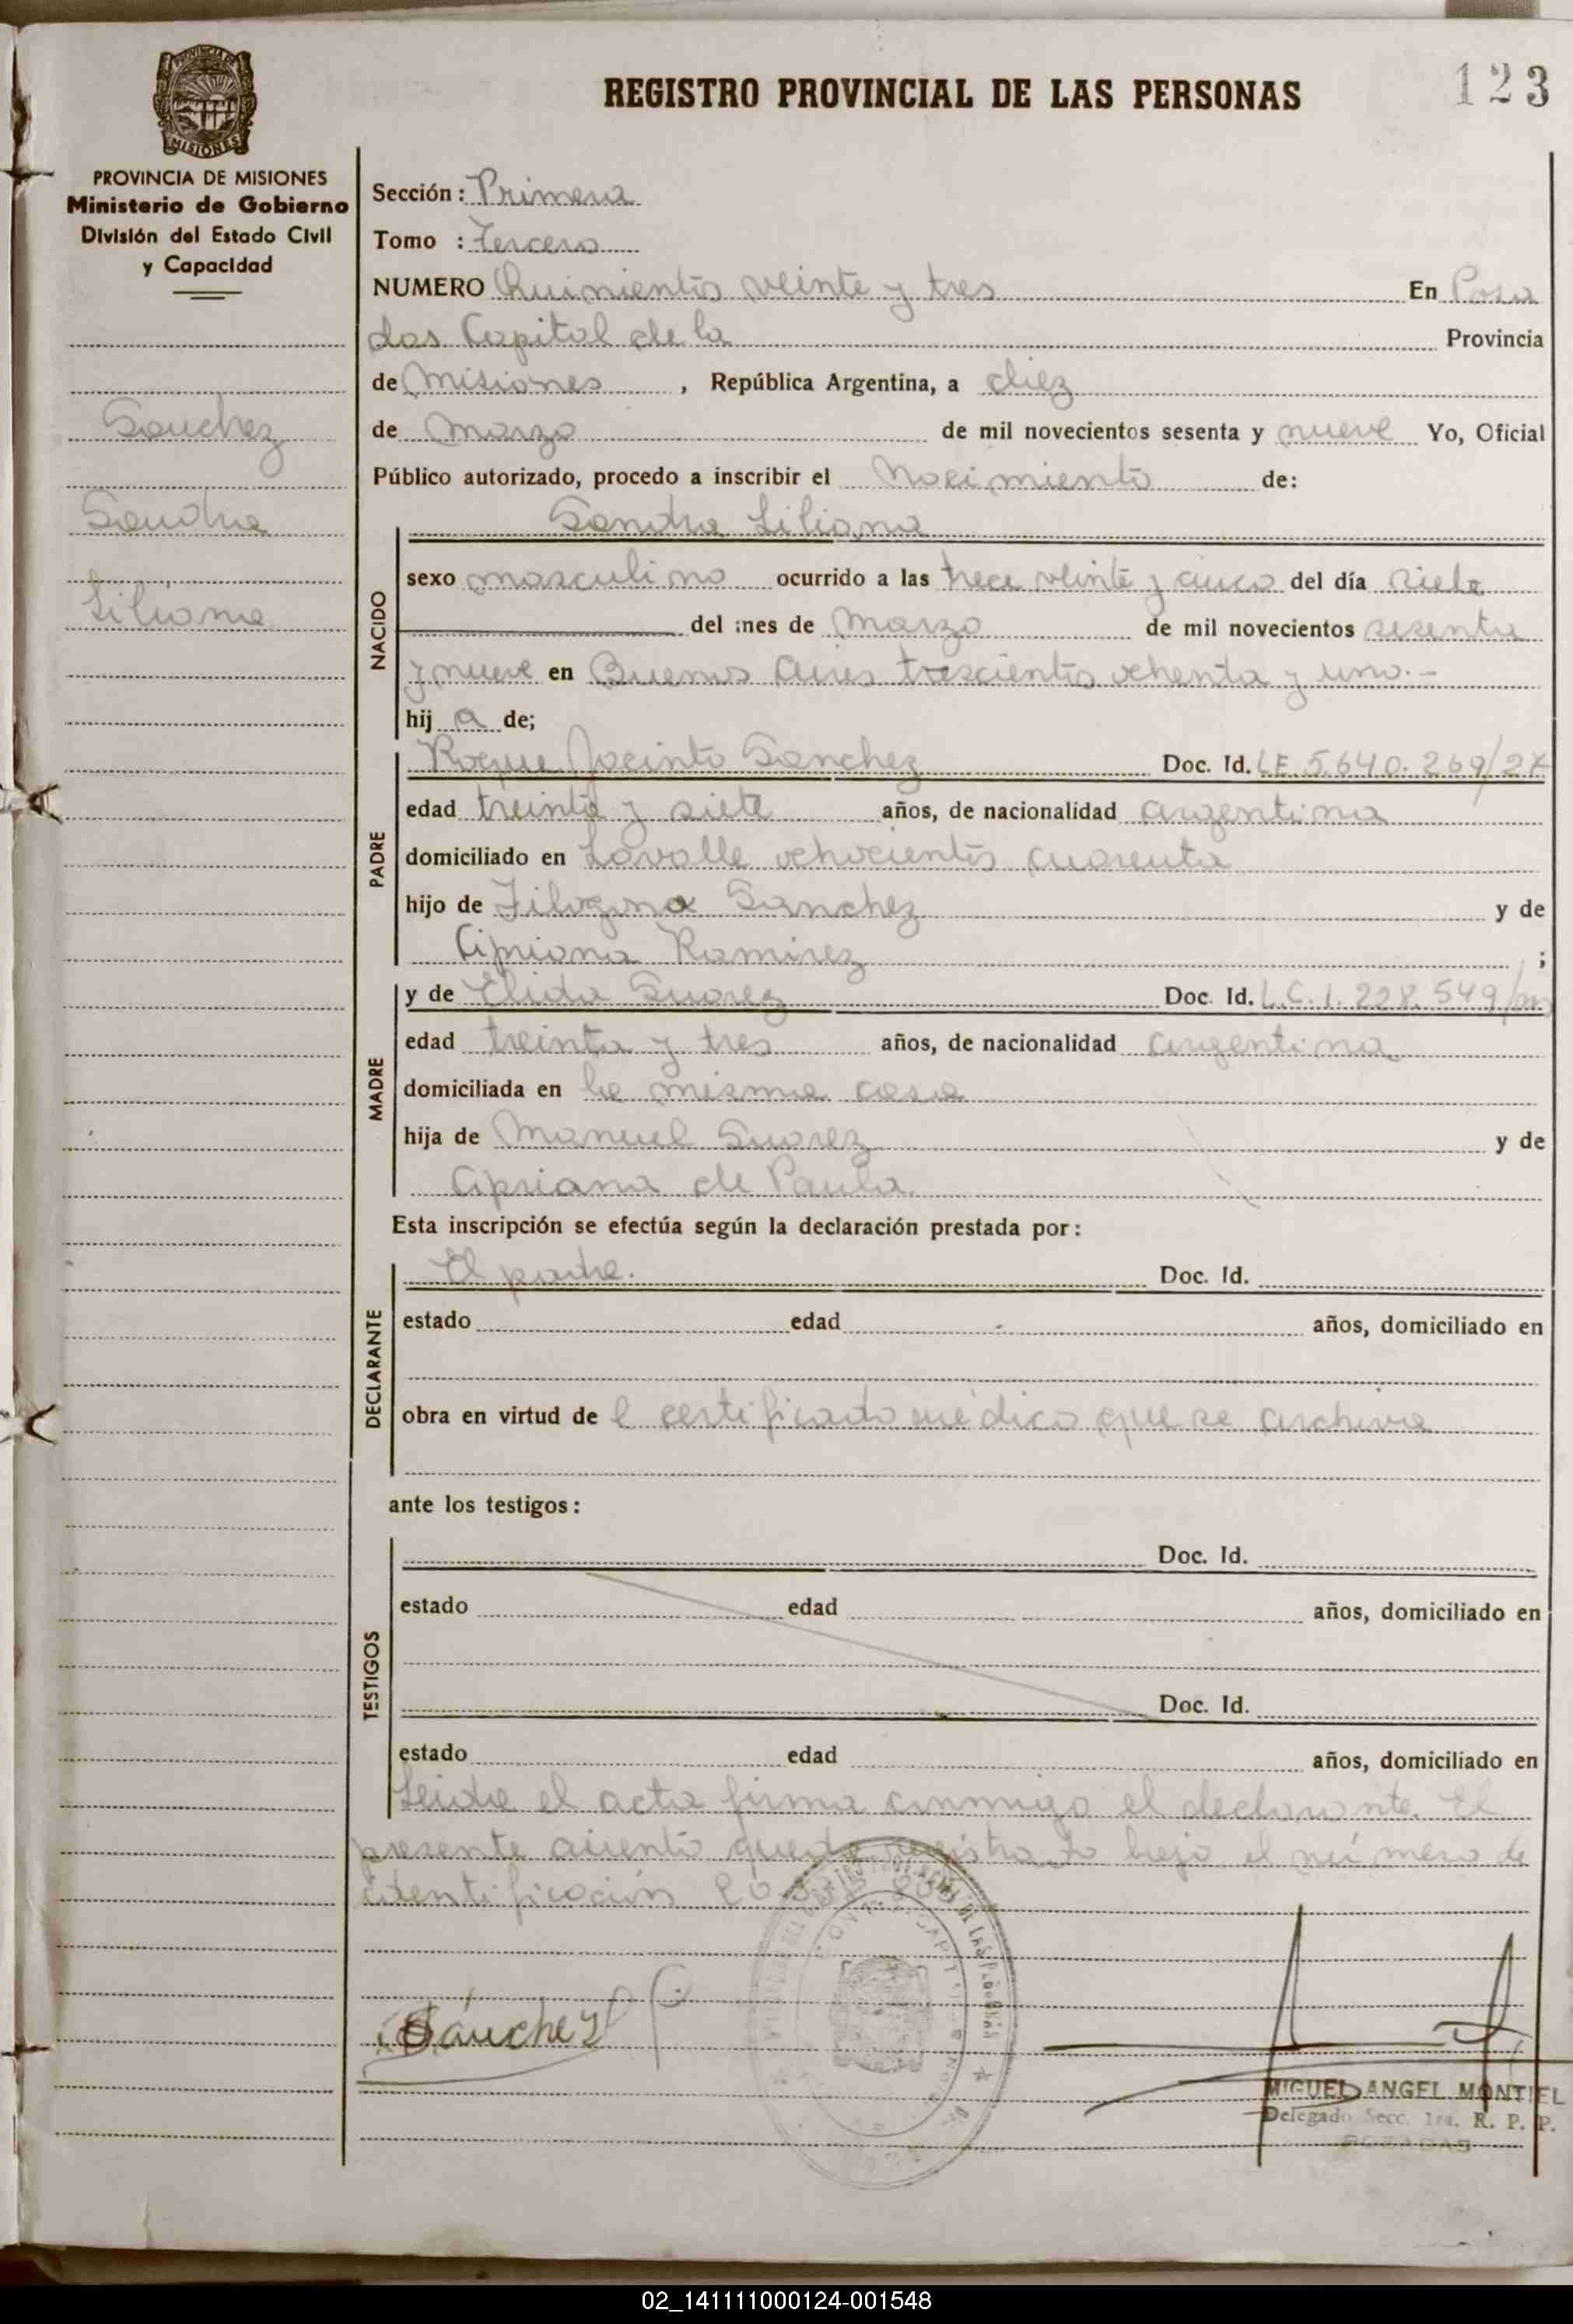 REGISTRO PROVINCIAL DE LAS PERSONAS
123
PROVINCIA DE
MISIONES
PROVINCIA DE MISIONES
Ministerio de Gobierno
División del Estado Civil
y Capacidad
Sanchez
Sandra
Liliana
Sección: Primera
Tomo : tercero
NUMERO Quinientos veinte y tres En Posa
das Capital de la Provincia
de Misiones , República Argentina, a diez
de Marzo de mil novecientos sesenta y nueve Yo, Oficial
Público autorizado, procedo a inscribir el Nacimiento de:
Sandra Liliana
NACIDO
sexo masculino ocurrido a las trece veinte y cinco del día siete
del mes de Marzo de mil novecientos sesenta
y nueve en Buenos Aires trescientos ochenta y uno.-
hij a de;
PADRE
Roque Jacinto Sanchez Doc. Id. L.E. 5.640.269/27
edad treinta y siete años, de nacionalidad argentina
domiciliado en Lavalle ochocientos cuarenta
hijo de Sanchez y de
Cipriana Ramirez ;
MADRE
y de Elida Suarez Doc. Id. L.C. 1.228.549/m
edad treinta y tres años, de nacionalidad argentina
domiciliada en la misma casa
hija de Manuel Suarez y de
Cipriana de Paula.
Esta inscripción se efectúa según la declaración prestada por:
DECLARANTE
El padre. Doc. Id.
estado edad años, domiciliado en
obra en virtud de l certificado médico que se archiva
ante los testigos:
TESTIGOS
Doc. Id.
estado edad años, domiciliado en
Doc. Id.
estado edad años, domiciliado en
Leida el acta firma conmigo el declarante. El
presente asiento queda registrado bajo el número de
identificación 20.
Sánchez
MIGUEL ANGEL MONTIEL
Delegado Secc. 1ra. R. P. P.
POSADAS
02_141111000124-001548